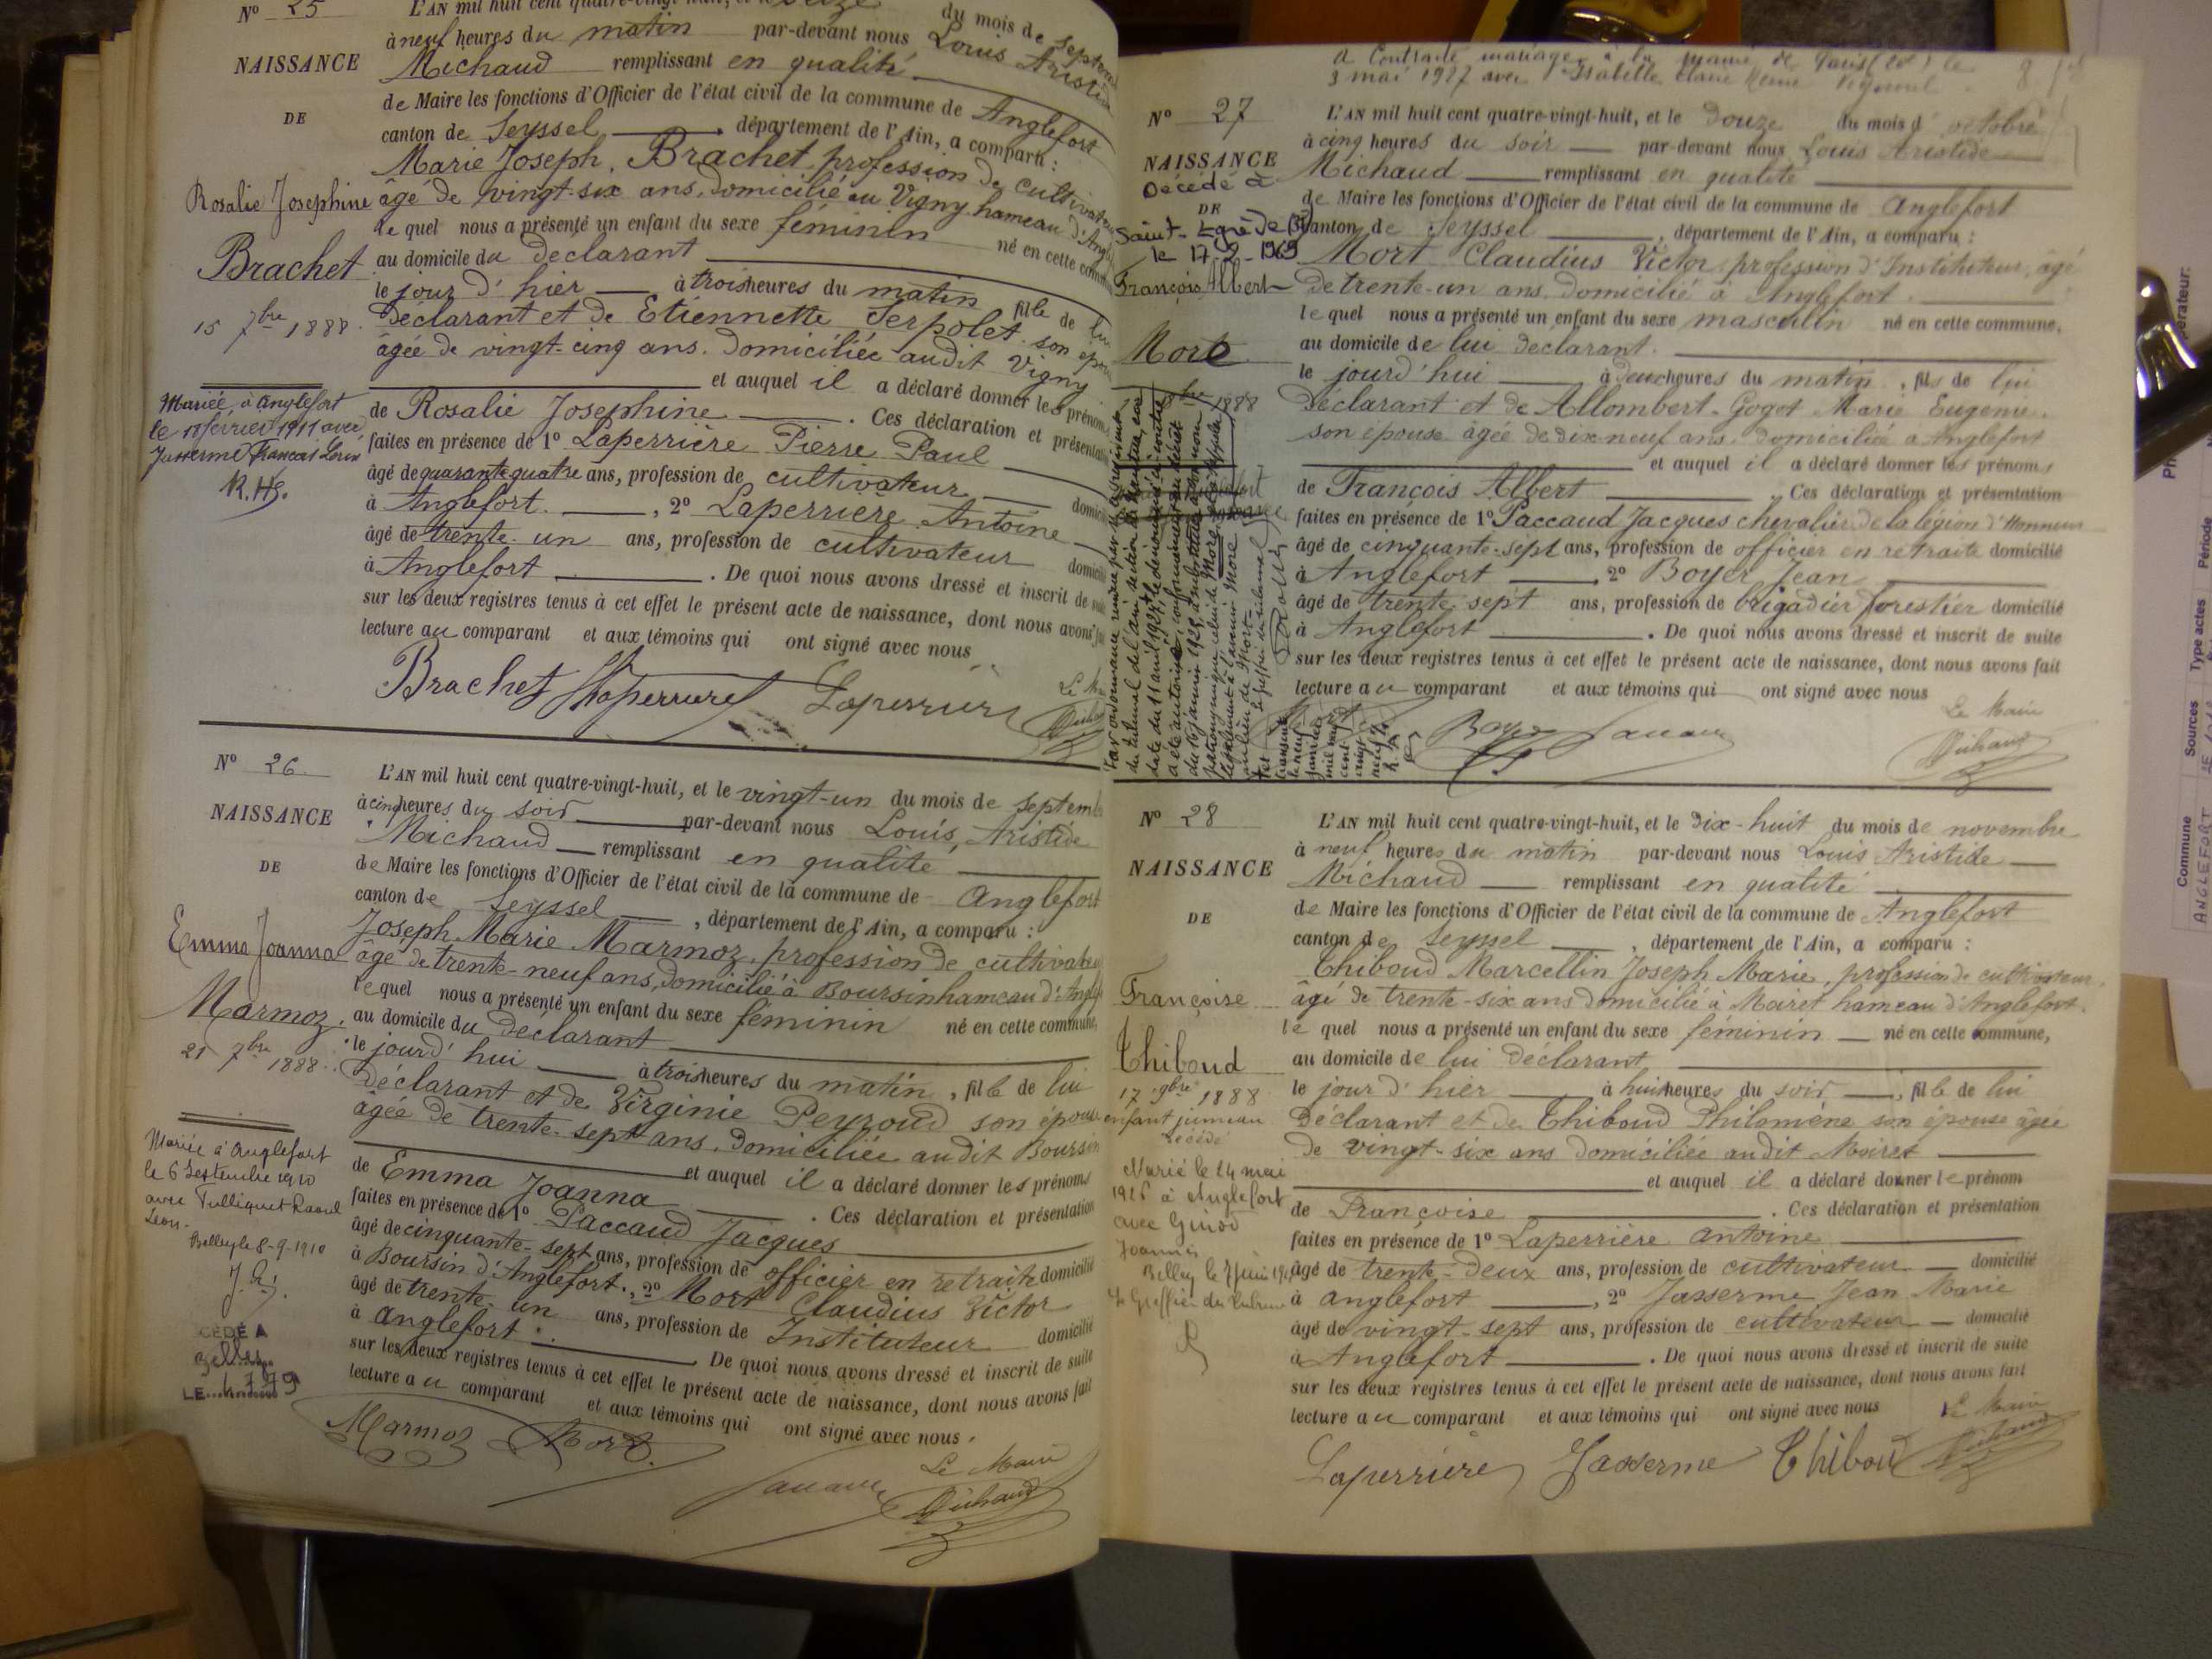 Nº 25
L'AN mil huit cent quatre-vingt-huit, et le seize du mois de septembre
à neuf heures du matin par-devant nous Louis Aristide
NAISSANCE
Michaud remplissant en qualité
de Maire les fonctions d'Officier de l'état civil de la commune de Anglefort
DE
canton de Seyssel, département de l'Ain, a comparu :
Marie Joseph Brachet, profession de cultivateur
Rosalie Josephine
âgé de vingt-six ans, domicilié au Vigny hameau d'
le quel nous a présenté un enfant du sexe féminin né en cette
Brachet
au domicile du déclarant
le jour d'hier à trois heures du matin fille de lui
15 7bre 1888.
déclarant et de Etiennette Serpolet son
âgée de vingt-cinq ans. domiciliée audit Vigny
et auquel il a déclaré donner les prénoms
Mariée à Anglefort
le 18 février 1911 avec
Jasserme François
R. H.
de Rosalie Josephine. Ces déclaration et
faites en présence de 1º Laperrière Pierre Paul
âgé de quarante quatre ans, profession de cultivateur
à Anglefort., 2º Laperrière Antoine
âgé de trente-un ans, profession de cultivateur
à Anglefort. De quoi nous avons dressé et inscrit de
sur les deux registres tenus à cet effet le présent acte de naissance, dont nous avons
lecture au comparant et aux témoins qui ont signé avec nous
Brachet Laperriere Laperriere
Nº 26
L'AN mil huit cent quatre-vingt-huit, et le vingt-un du mois de
à cinq heures du soir par-devant nous Louis, Aristide
NAISSANCE
Michaud remplissant en qualité
de Maire les fonctions d'Officier de l'état civil de la commune de Anglefort
DE
canton de Seyssel, département de l'Ain, a comparu :
Joseph Marie Marmoz, profession de
Emma Joanna
âgé de trente-neuf ans, domicilié à Boursin hameau d'
le quel nous a présenté un enfant du sexe féminin né en cette commune,
Marmoz.
au domicile du déclarant
21 7bre 1888.
le jour d'hui à trois heures du matin, fille de lui
déclarant et de Virginie Peyroud son épouse
âgée de trente-sept ans, domiciliée audit Boursin
et auquel il a déclaré donner les prénoms
Mariée à Anglefort
le 6 Septembre 1910
avec Tulliquet Raoul
Leon.
Belley le 8-9-1910
de Emma Joanna. Ces déclaration et présentation
faites en présence de 1º Paccaud Jacques
âgé de cinquante-sept ans, profession de officier en retraite domicilié
à Boursin d'Anglefort., 2º Mort Claudius Victor
âgé de trente-un ans, profession de Instituteur domicilié
à Anglefort. De quoi nous avons dressé et inscrit de suite
sur les deux registres tenus à cet effet le présent acte de naissance, dont nous avons fait
lecture au comparant et aux témoins qui ont signé avec nous.
Marmoz Mort
Le Maire
Michaud
a contracté mariage à la mairie de Paris le
3 mai 1927 avec Isabelle
Nº 27
L'AN mil huit cent quatre-vingt-huit, et le Douze du mois d'octobre
à cinq heures du soir par-devant nous Louis Aristide
NAISSANCE
Décédé à
Michaud remplissant en qualité
de Maire les fonctions d'Officier de l'état civil de la commune de Anglefort
DE
Saint-Egrève (38)
le 17-2-1969
canton de Seyssel, département de l'Ain, a comparu :
Mort Claudius Victor profession d'Instituteur, âgé
François Albert
de trente-un ans, domicilié à Anglefort.
le quel nous a présenté un enfant du sexe masculin né en cette commune,
Mort
au domicile de lui déclarant.
le jour d'hui à deux heures du matin, fils de lui
déclarant et de Allombert-Goget Marie Eugenie.
son épouse âgée de dix-neuf ans, domiciliée à Anglefort
et auquel il a déclaré donner les prénoms
de François Albert. Ces déclaration et présentation
faites en présence de 1º Paccaud Jacques chevalier de la légion d'Honneur
âgé de cinquante-sept ans, profession de officier en retraite domicilié
à Anglefort, 2º Boyer Jean
âgé de trente-sept ans, profession de brigadier forestier domicilié
à Anglefort. De quoi nous avons dressé et inscrit de suite
sur les deux registres tenus à cet effet le présent acte de naissance, dont nous avons fait
lecture au comparant et aux témoins qui ont signé avec nous
Le Maire
Boyer
Michaud
Nº 28
L'AN mil huit cent quatre-vingt-huit, et le Dix-huit du mois de novembre
à neuf heures du matin par-devant nous Louis Aristide
NAISSANCE
Michaud remplissant en qualité
de Maire les fonctions d'Officier de l'état civil de la commune de Anglefort
DE
canton de Seyssel, département de l'Ain, a comparu :
Thiboud Marcellin Joseph Marie, profession de cultivateur,
Françoise
âgé de trente-six ans domicilié à Moiret hameau d'Anglefort.
le quel nous a présenté un enfant du sexe féminin né en cette commune,
Thiboud
au domicile de lui déclarant
17 9bre 1888
le jour d'hier à huit heures du soir, fille de lui
enfant jumeau
décédé
déclarant et de Thiboud Philomène son épouse âgée
de vingt-six ans domiciliée audit Moiret
et auquel il a déclaré donner le prénom
Marié le 24 mai
à Anglefort
avec Girod
Joannès
de Françoise. Ces déclaration et présentation
faites en présence de 1º Laperrière Antoine
âgé de trente-deux ans, profession de cultivateur domicilié
à Anglefort, 2º Jasserme Jean Marie
âgé de vingt-sept ans, profession de cultivateur domicilié
à Anglefort. De quoi nous avons dressé et inscrit de suite
sur les deux registres tenus à cet effet le présent acte de naissance, dont nous avons fait
lecture au comparant et aux témoins qui ont signé avec nous
Le Maire
Laperrière Jasserme Thiboud Michaud
Commune Sources Type actes Période
ANGLEFORT